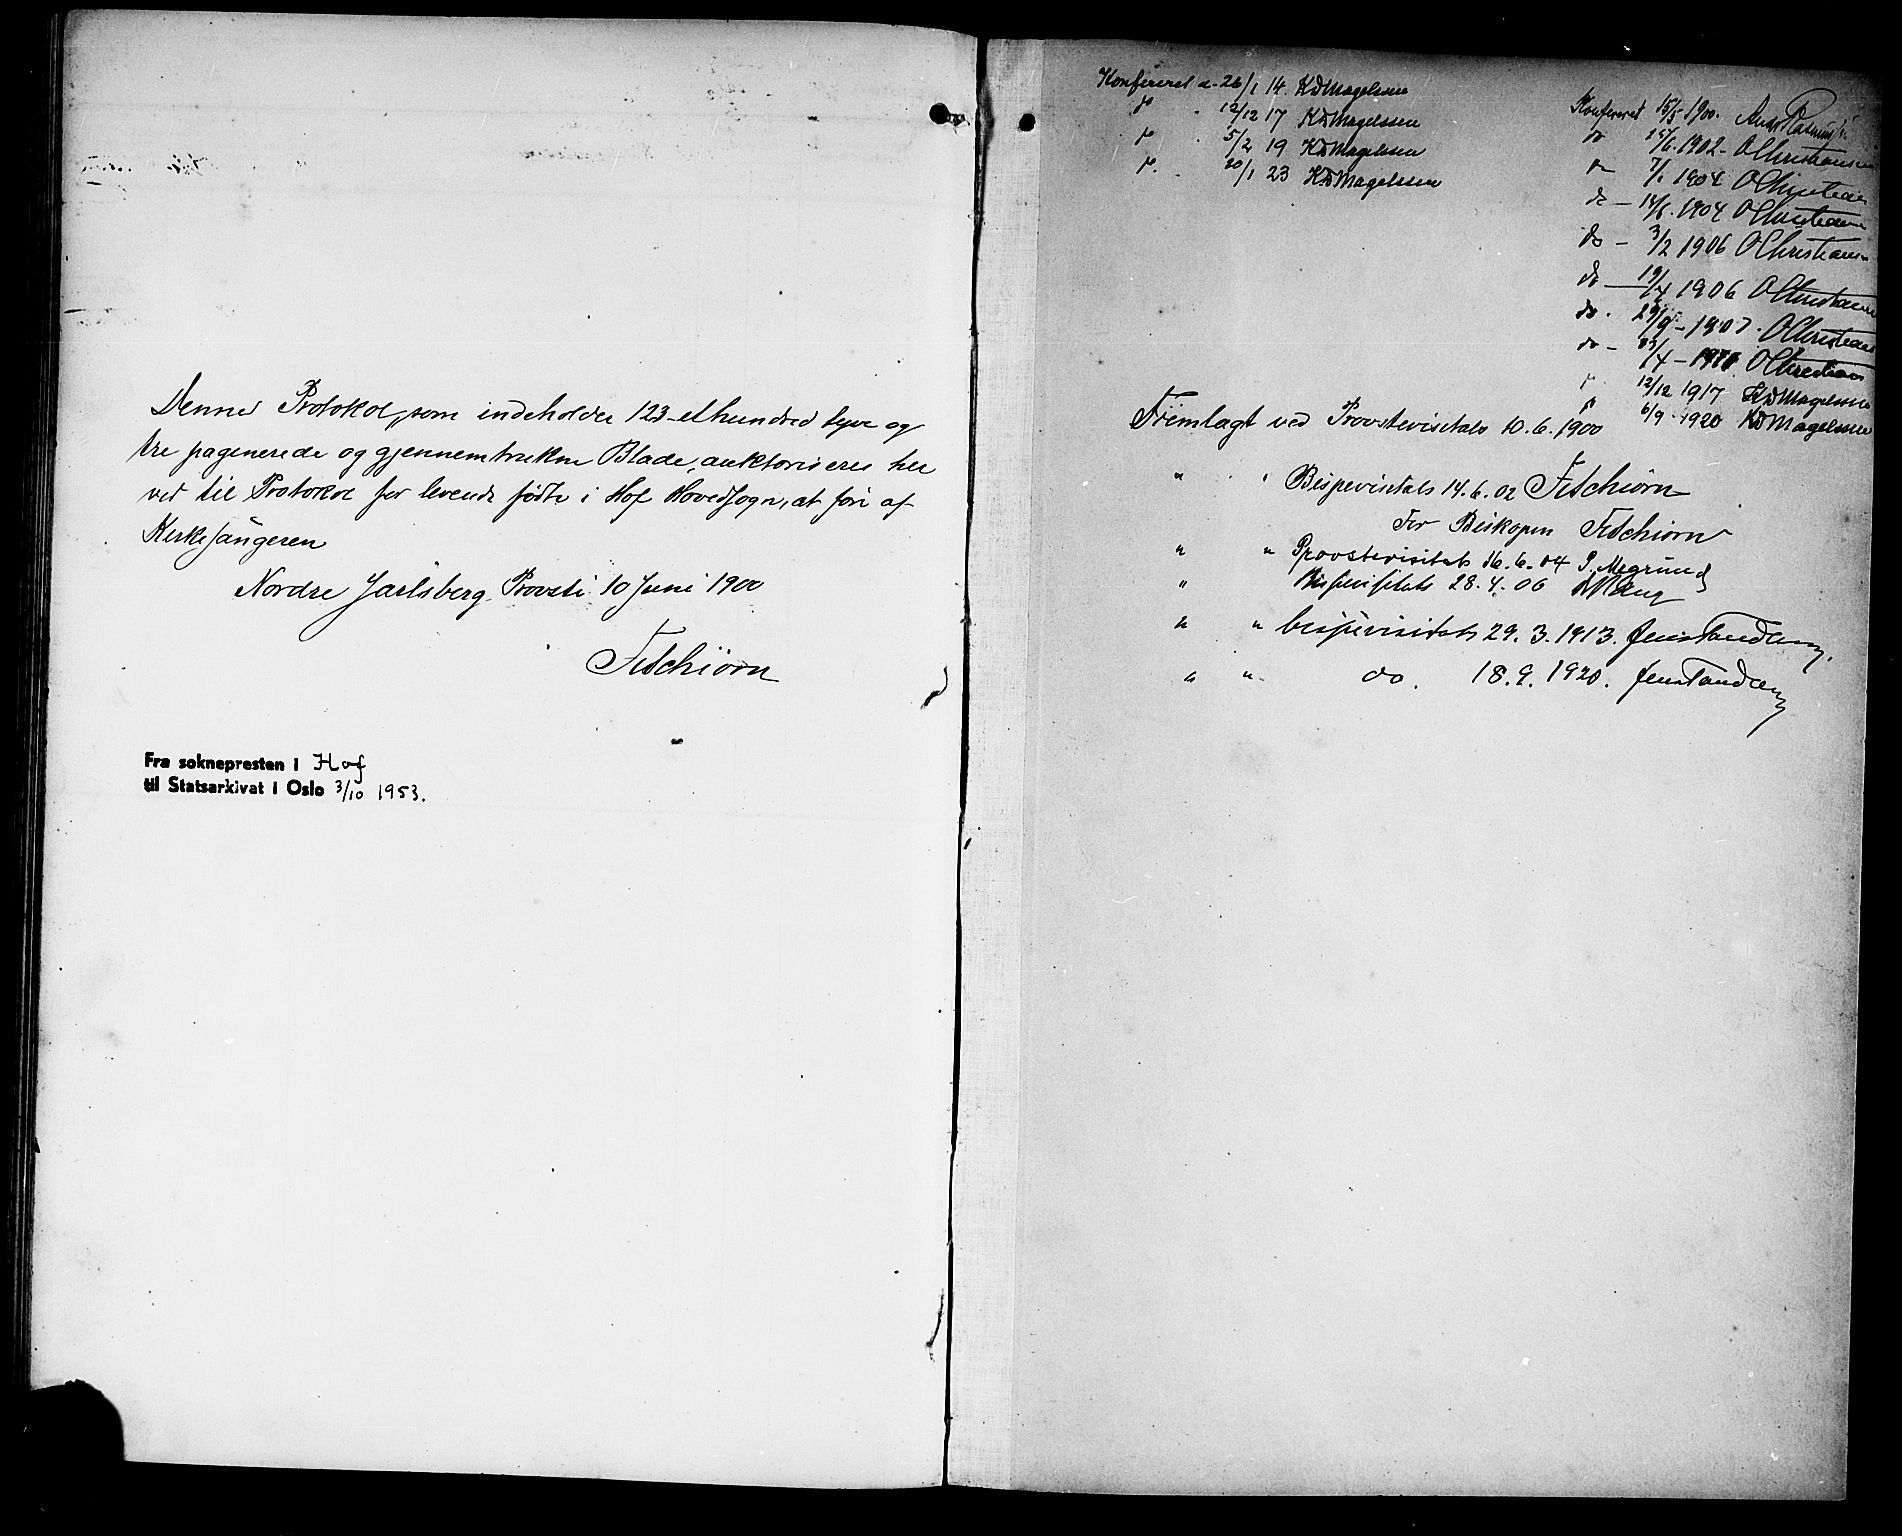 Denne Protokol, som indeholder 123 - ethundred tyve og
tre paginerede og gjennemtrukne Blade, auktoriseres her
ved til Protokol for levende fødte i Hof Hovedsogn, at føre af
Kirkesangeren
Nordre Jarlsberg Provsti 10 Juni 1900
F. Schiørn
Fra soknepresten i Hof
til Statsarkivat i Oslo 3/10 1953.
Konfereret d. 26/1 14. KDMagelssen
" 12/12 17 KDMagelssen
" 5/2 19 KDMagelssen
" 20/1 23 KDMagelssen
Konfereret 15/5 1900.
do 1902 - OChristiansen
do 7/1 1904 OChristiansen
do - 14/6. 1904 OChristiansen
do - 3/2 1906 OChristiansen
do - 19/4 1906 OChristiansen
do. 29/9 - 1907. OChristiansen
do - OChristiansen
" 12/12 1917 KDMagelssen
" 6/9 1920 KDMagelssen
Fremlagt ved Provstevisitats 10.6.1900
" " Bispevisitats 14.6.02 F. Schiørn
For Biskopen F. Schiørn
" " Provstevisitats 16.6.04
" Bispevisitats 28.4.06
" " bispevisitats 29.3.1913. Jens Tandberg.
" " do. 18.9.1920. Jens Tandberg